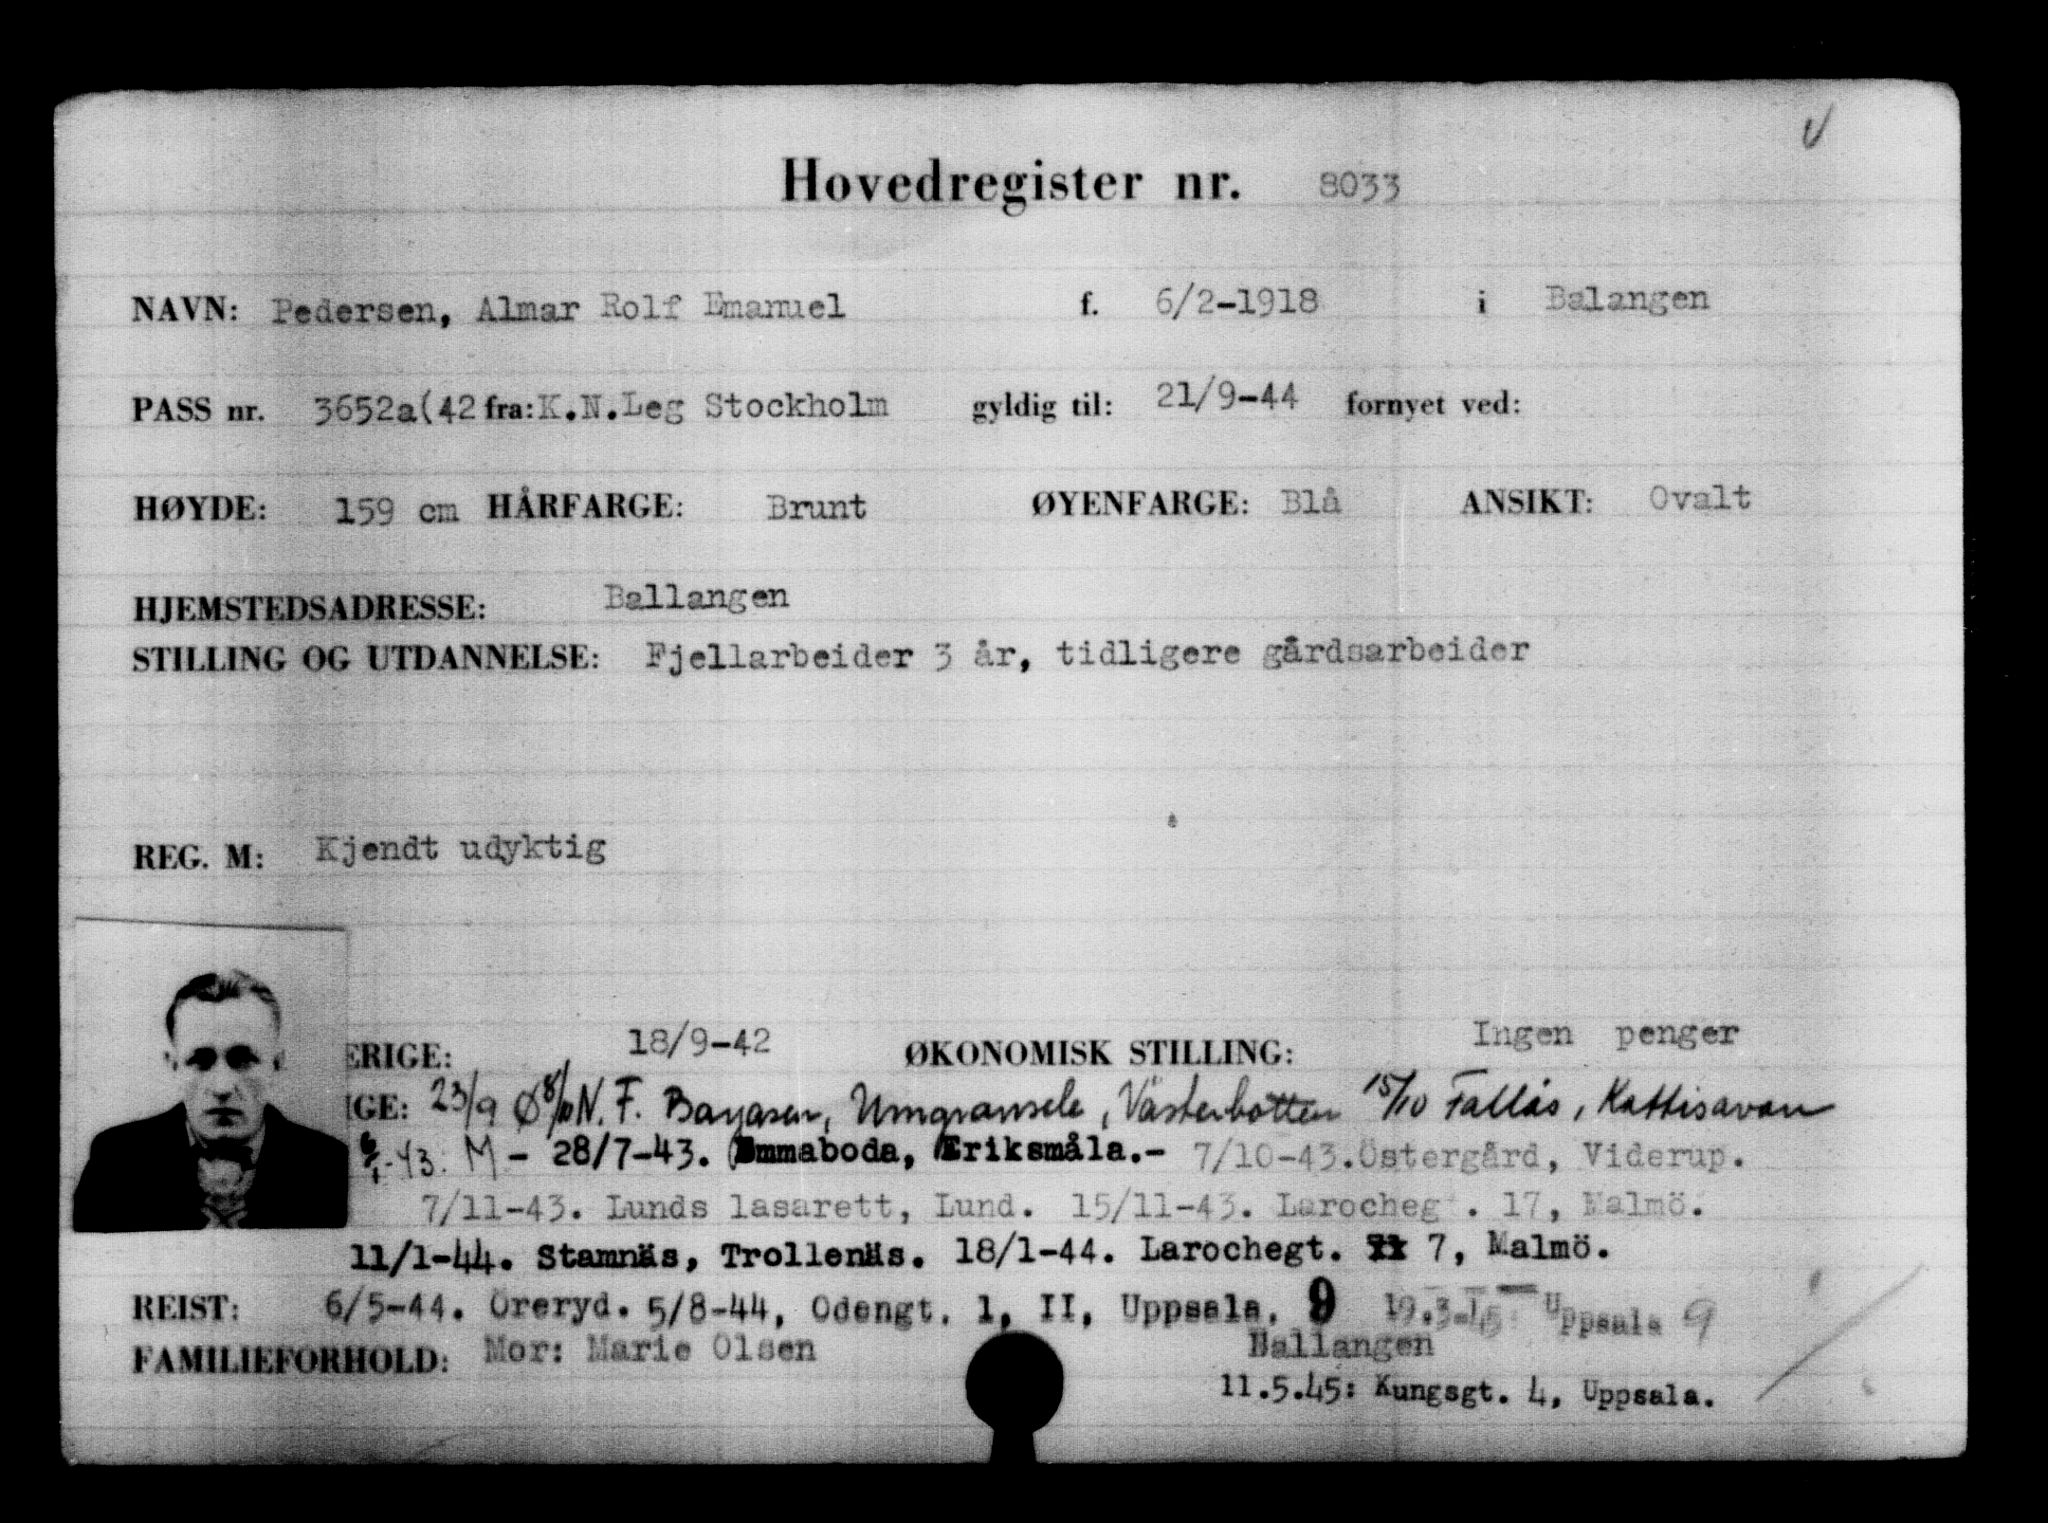 V
Hovedregister nr. 8033
NAVN: Pedersen, Almar Rolf Emanuel f. 6/2-1918 i Balangen
PASS nr. 3652a(42 fra: K.N.Leg Stockholm gyldig til: 21/9-44 fornyet ved:
HØYDE: 159 cm HÅRFARGE: Brunt ØYENFARGE: Blå ANSIKT: Ovalt
HJEMSTEDSADRESSE: Ballangen
STILLING OG UTDANNELSE: Fjellarbeider 3 år, tidligere gårdsarbeider
REG. M: Kjendt udyktig
ERIGE: 18/9-42 ØKONOMISK STILLING: Ingen penger
IGE: 23/9 Ø 8/10 N. F. Umgransele, Västerbotten 15/10 Fallås, Kattisavan
6/1-43. M - 28/7-43. Emmaboda, Eriksmåla.- 7/10-43.Östergård, Viderup.
7/11-43. Lunds lasarett, Lund. 15/11-43. Larochegt. 17, Malmö.
11/1-44. Stamnäs, Trollenäs. 18/1-44. Larochegt. 7, Malmö.
REIST: 6/5-44. Öreryd. 5/8-44, Odengt. 1, II, Uppsala. 9 19.3-45 Uppsala 9
FAMILIEFORHOLD: Mor: Marie Olsen Ballangen
11.5.45: Kungsgt. 4, Uppsala.